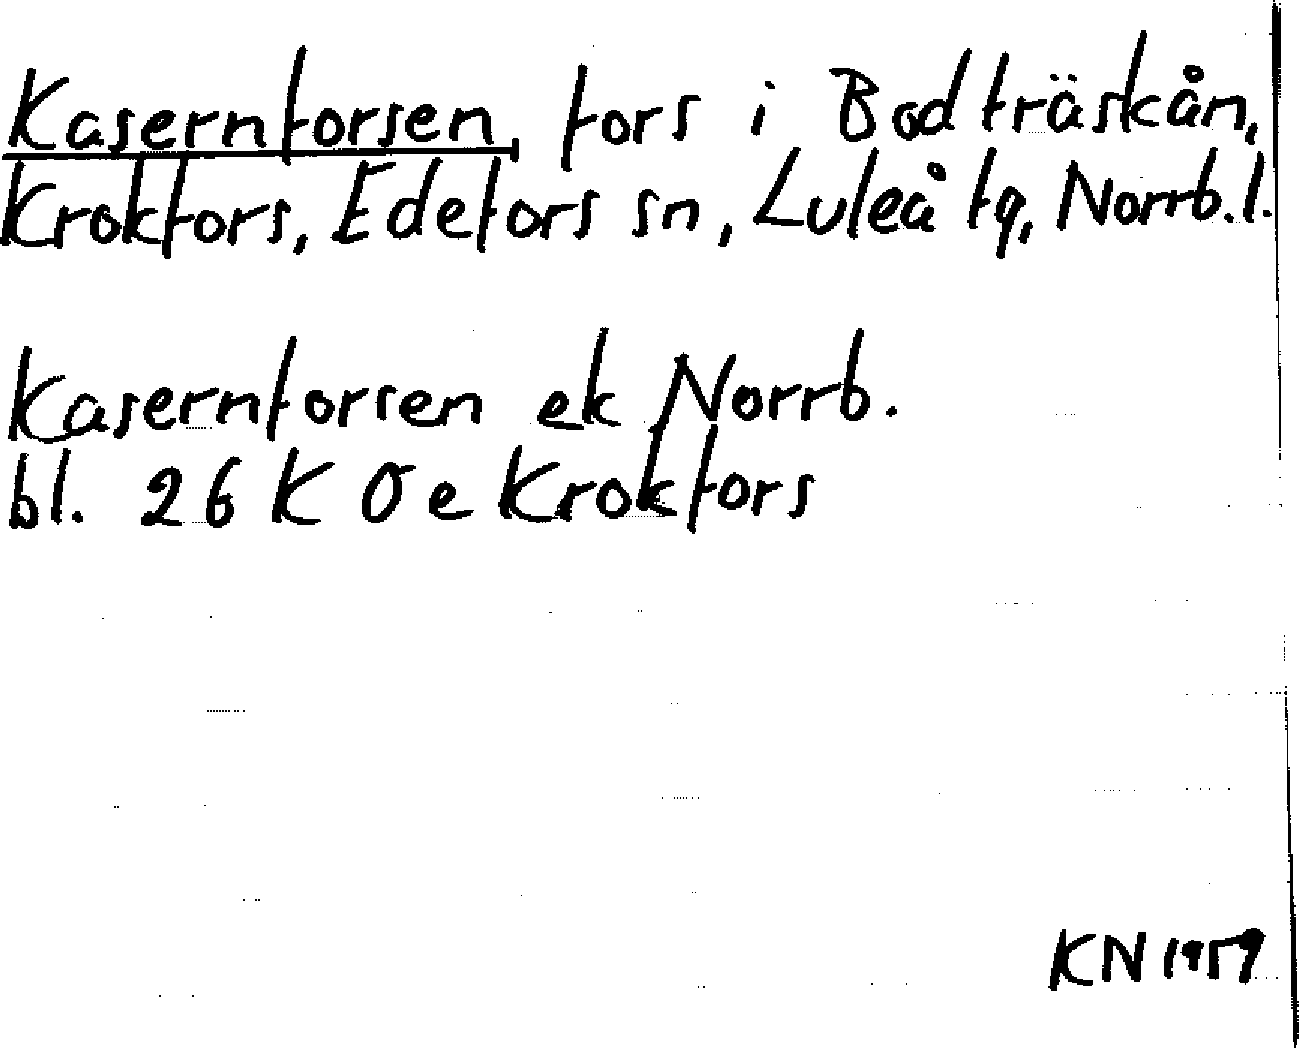 Kasernforsen, fors i Bodträskån,
Krokfors, Edefors sn, Luleå tg, Norrb.l.
Kasernforsen ek Norrb.
bl. 26 K Ö e Krokfors
KN 1959